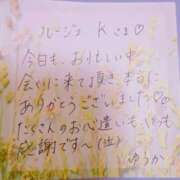 ルージュ Kさま♡
今日も、お忙しい中
会いに来て頂き、本当に
ありがとうございました♡。
たくさんのお心遣いも、いつも
感謝です〜(泣)
ゆうか